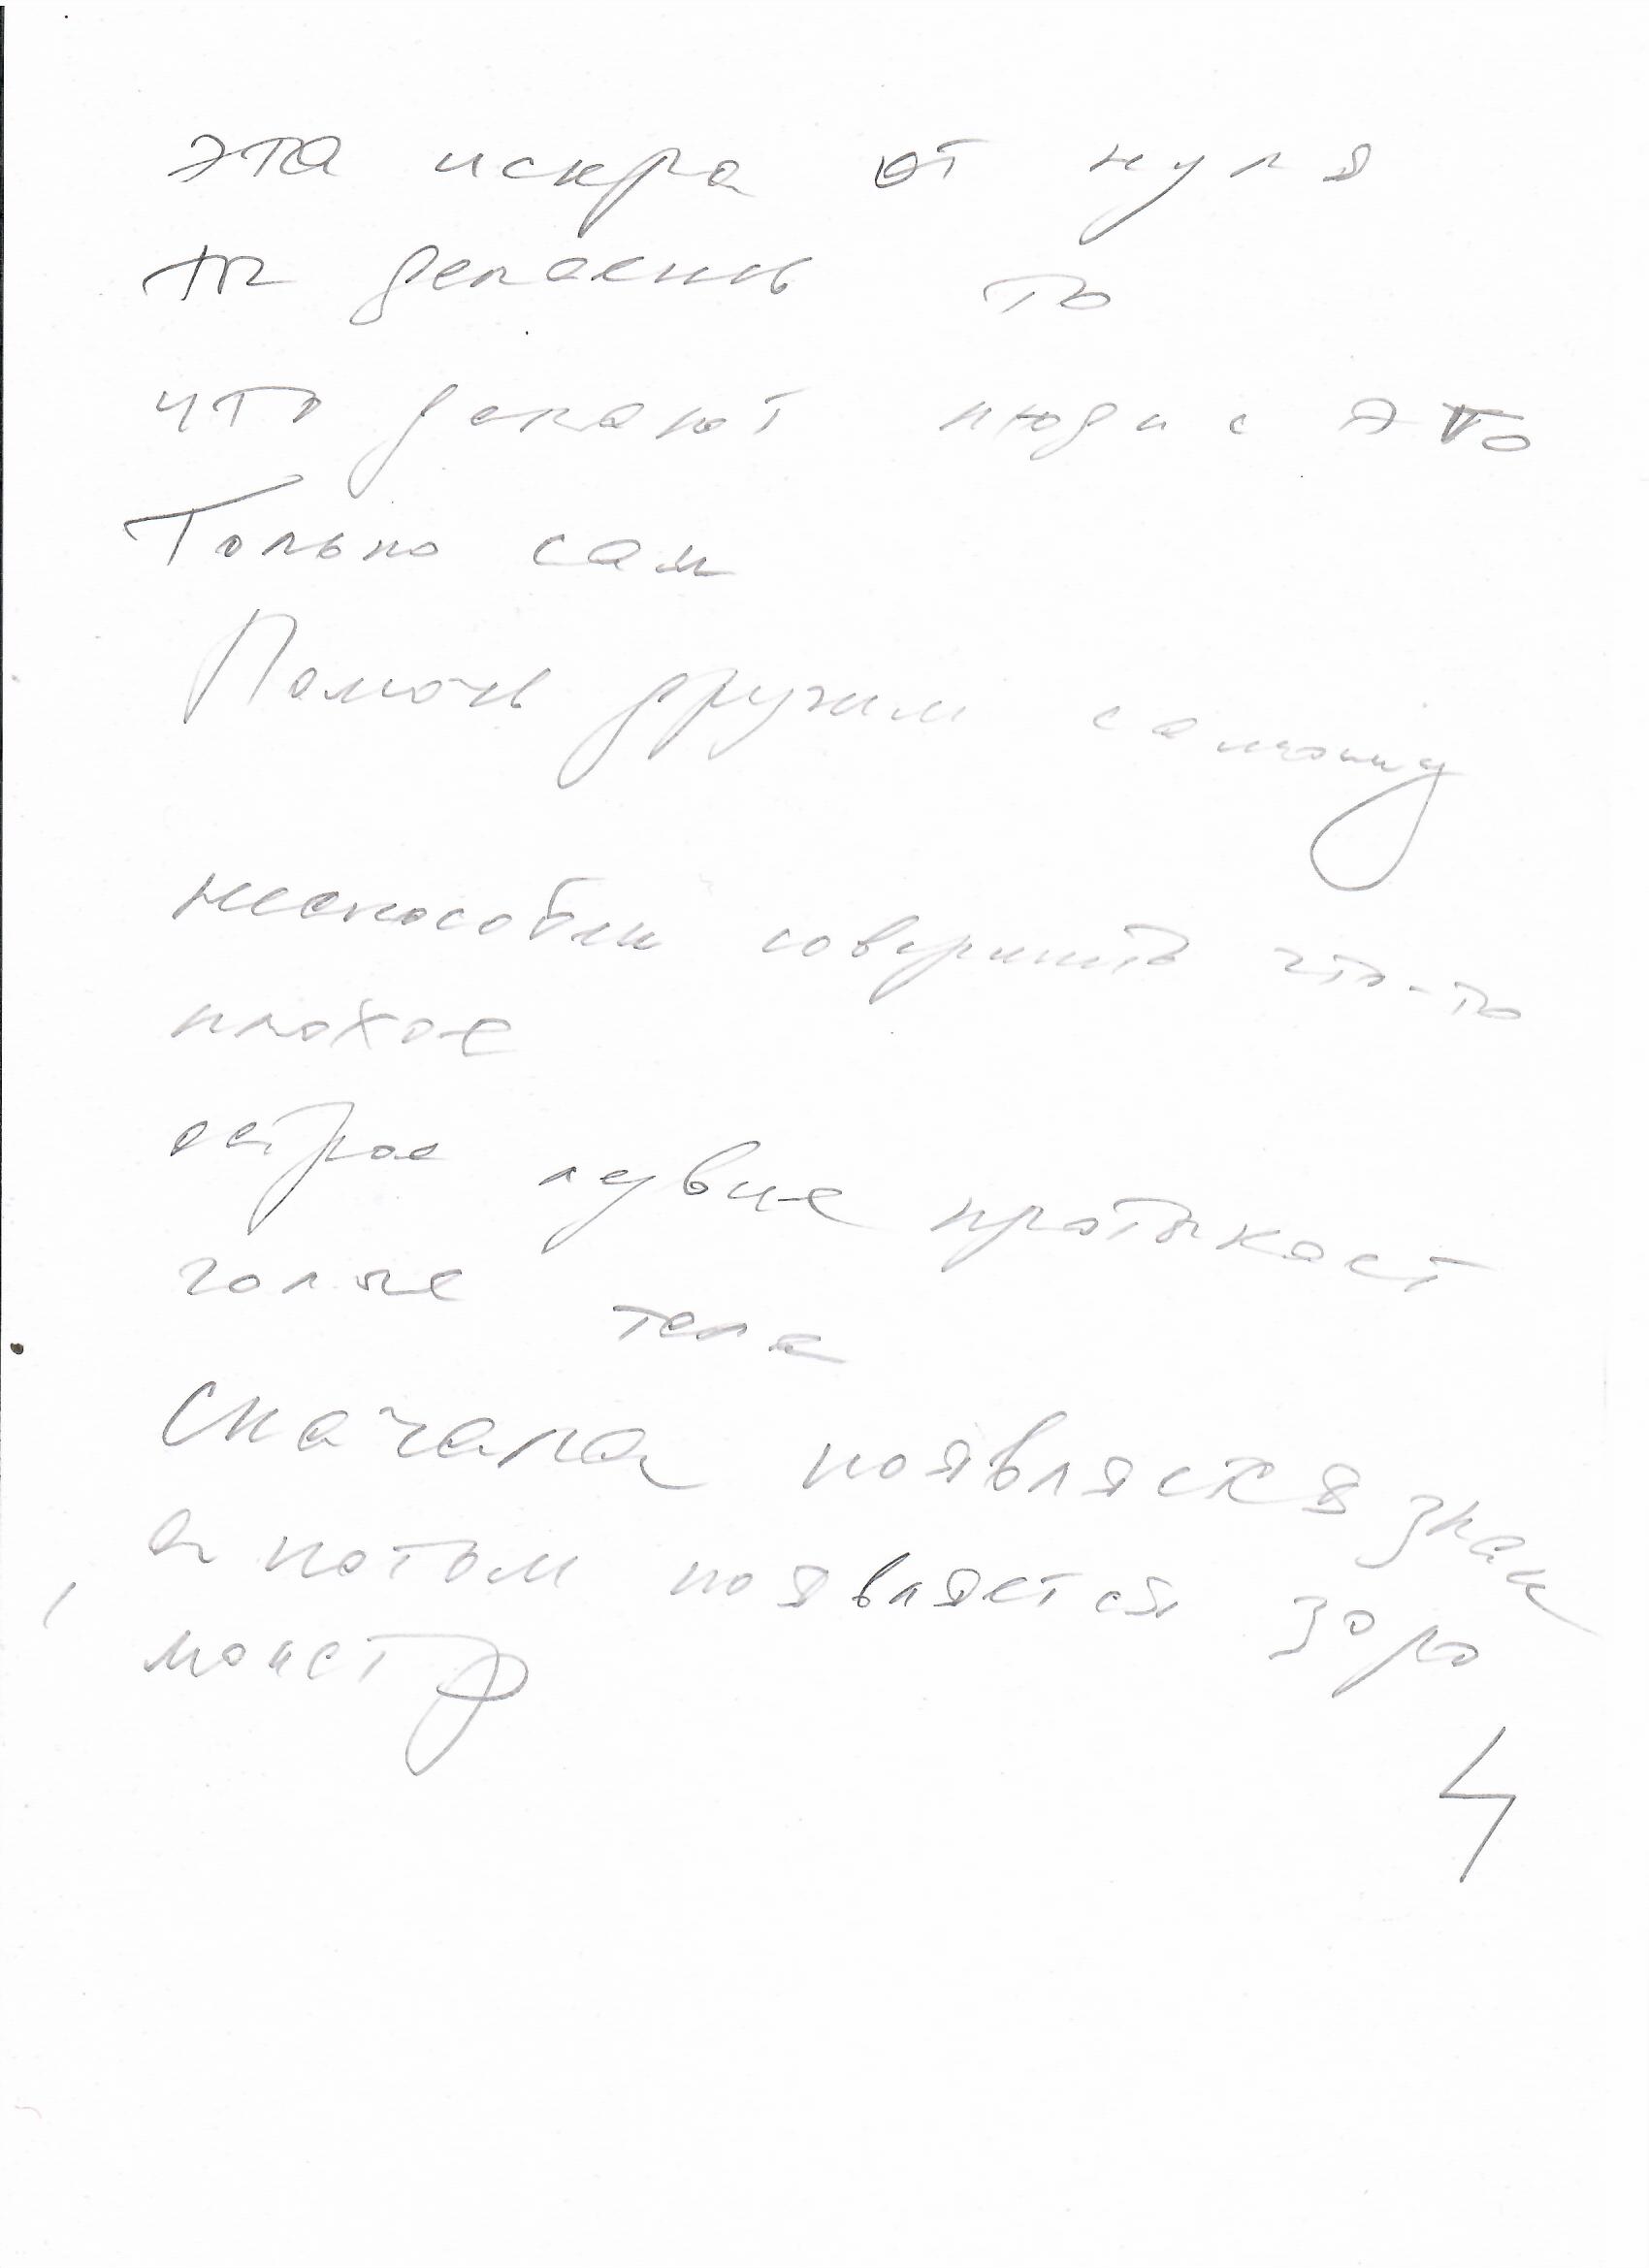 эта искра от нуля
ты делаешь то
что делают люди с это
Только сам
Помочь другим самому
неспособны совершить что-то
плохое
острое лезвие протыкает
голые тела
сначала появляется знак
а потом появляется зоро
монстр
4